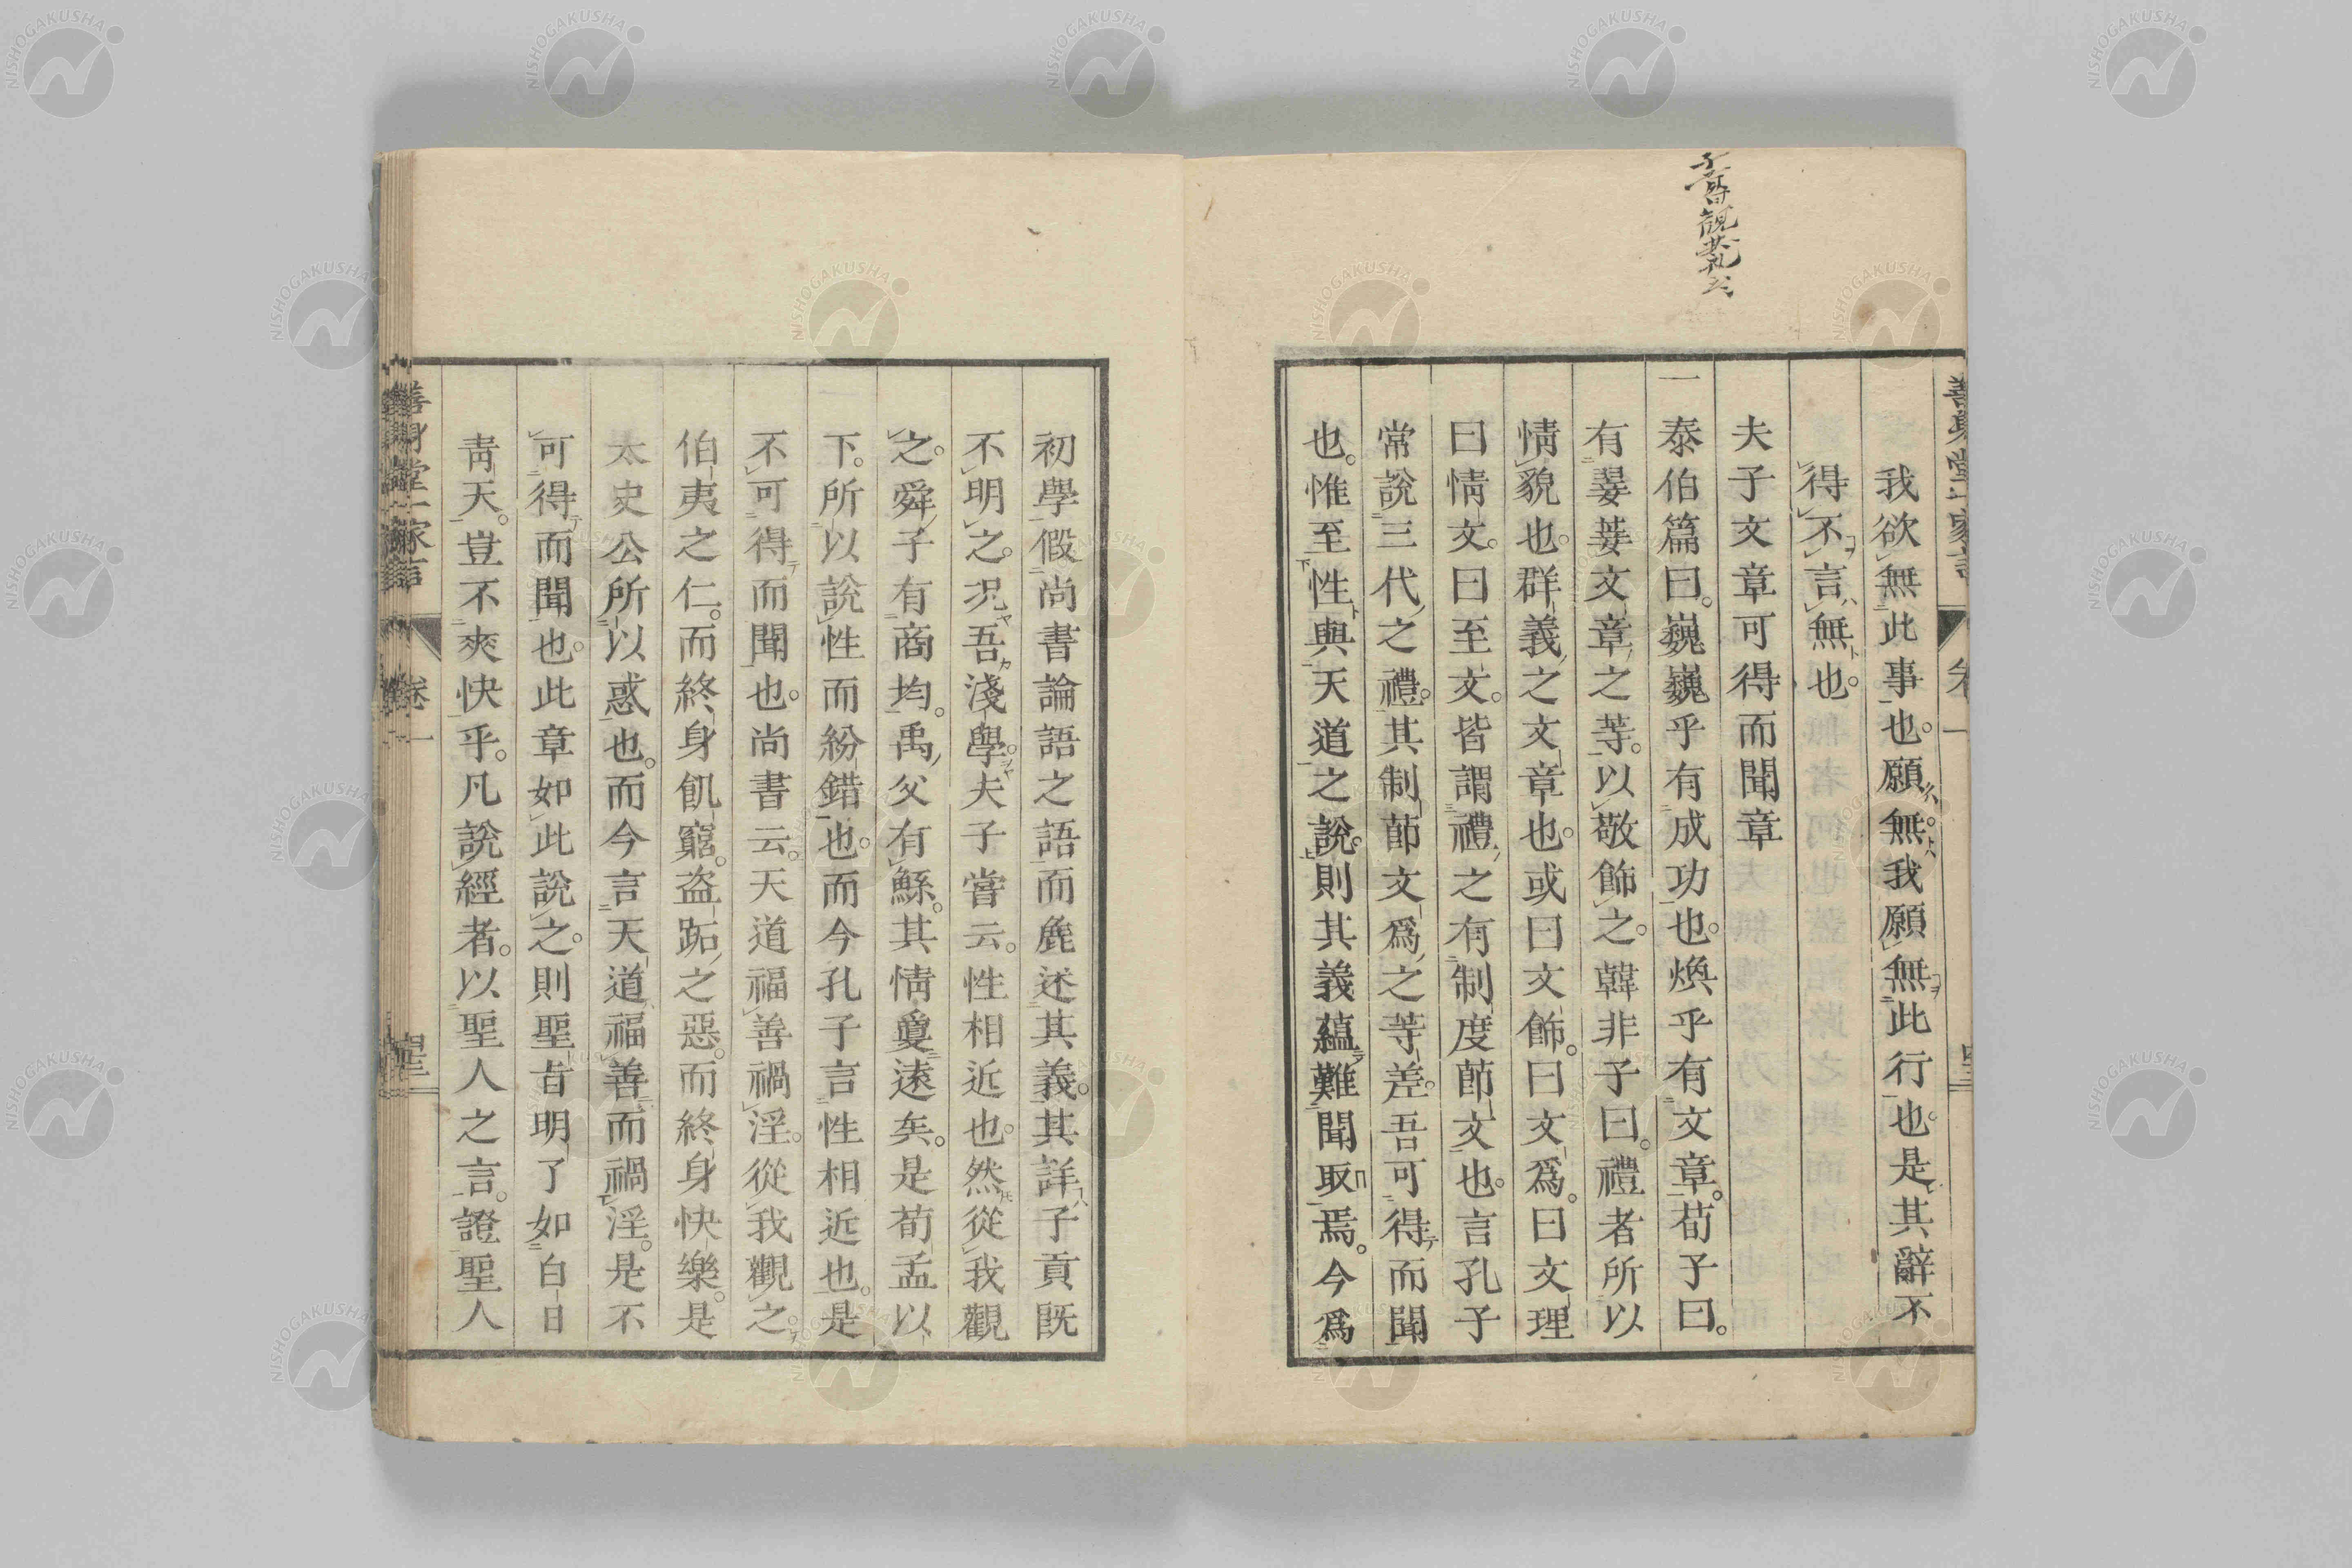 我欲無此事也。願無。無我願無此行也。是其辭不
得不言無也。
夫子文章可得而聞章
一泰伯篇曰。巍巍乎有成功也。煥乎有文章。荀子曰。
有翣菨文章之等。以敬飾之。韓非子曰。禮者所以
情貌也。群義之文章也。或曰文飾。曰文爲。曰文理
曰情文。曰至文。皆謂禮之有制度節文也。言孔子
常說三代之禮。其制節文爲之等差。吾可得而聞
也。惟至性與天道之說。則其義蘊難聞取焉。今爲
初學假尚書論語之語而麁述其義。其詳子貢既
不明之。况吾淺學。夫子嘗云。性相近也。然從我觀
之。舜子有商均。禹父有鯀。其情夐遠矣。是荀孟以
下。所以說性而紛錯也。而今孔子言性相近也。是
不可得而聞也。尚書云。天道福善禍淫。從我觀之。
伯夷之仁。而終身飢窮。盗跖之惡。而終身快樂。是
太史公所以惑也。而今言天道福善而禍淫。是不
可得而聞也。此章如此說之。則聖旨明了如白日
靑天。豈不爽快乎。凡說經者。以聖人之言。證聖人
卷一
NISHOGAKUSHA